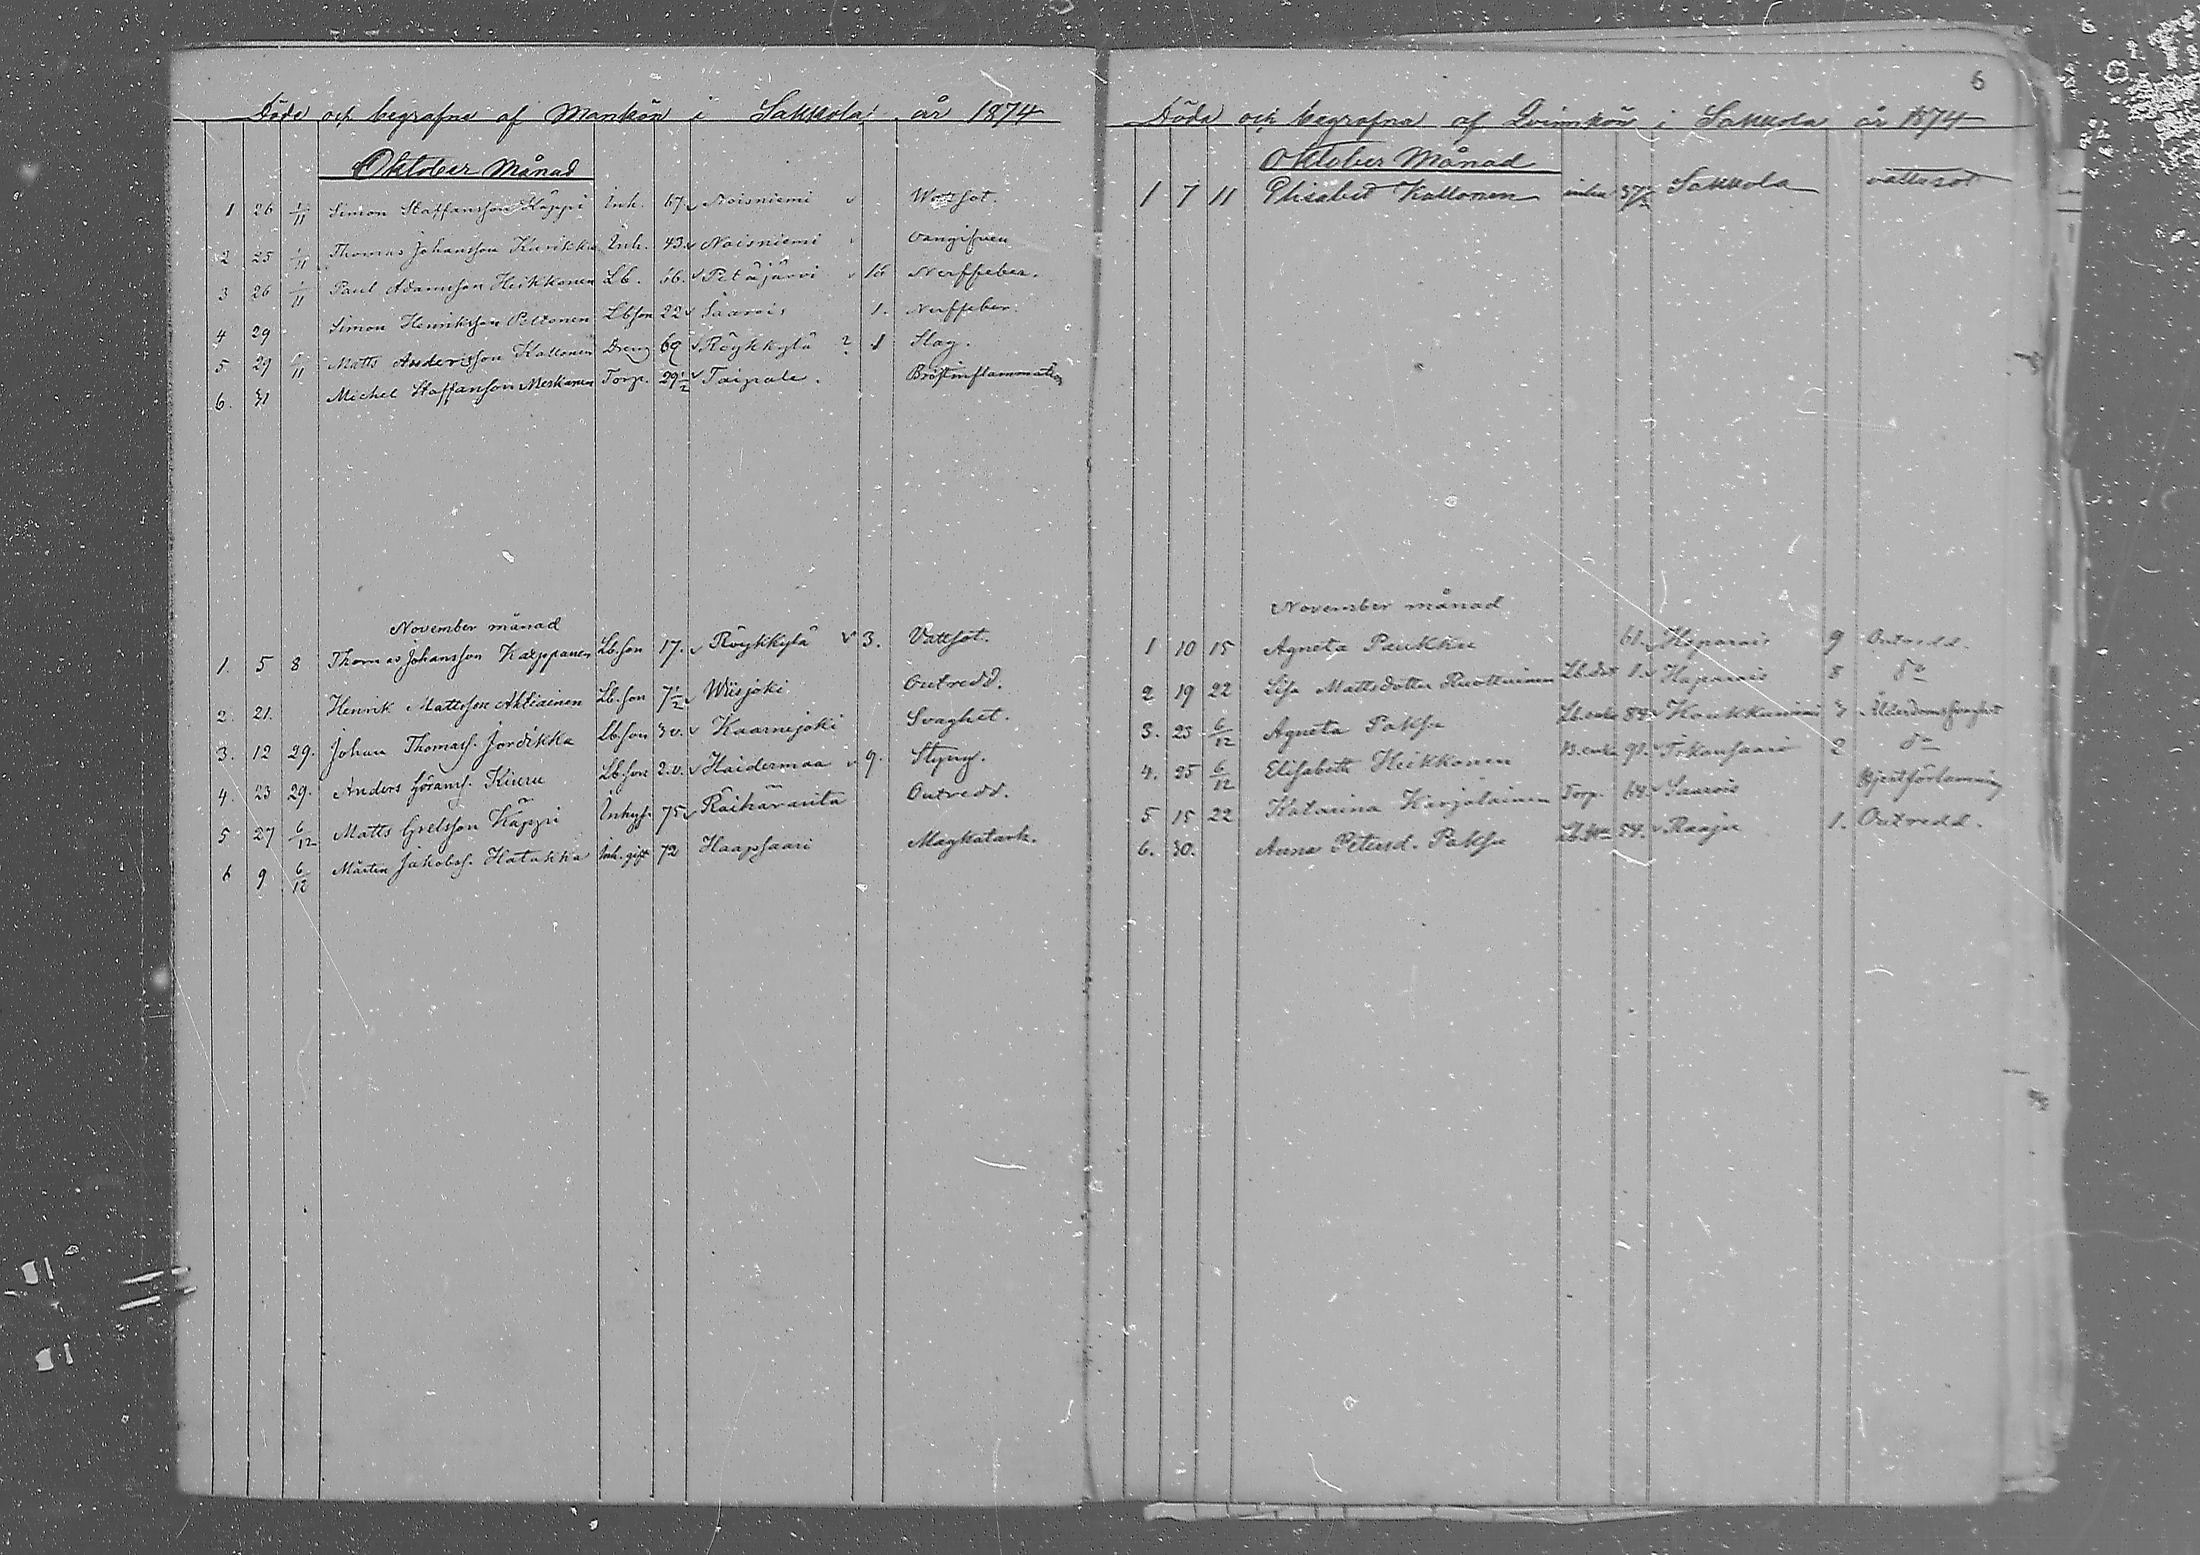 Döde och begrafne af Mankön i Sakkola år 1874
Oktober Månad
1 26 1/11 Simon Staffansson Käppi Inh. 67. Noisniemi v Wattsot.
2 25 1/11 Thomas Johansson Inh. 43. Noisniemi v
3 26 1/11 Paul Adamsson Heikkonen Lb. 66. Petäjärvi v 16 Nerffeber.
4 29 Simon Henriksson Peltonen Lbson 22 Saarois 1. Nerffeber.
5 29 /11 Matts Andersson Kallonen Dreng 69 Röykkylä ? 1 Slag.
6. 31 Michel Staffansson Meskanen Torp. 29 1/2 Taipale. Bröstinflammation
November månad
1. 5 8 Thomas Johansson Karppanen Lb. son 17. Röykkylä v 3. Vattsot.
2. 21. Henrik Mattsson Ahtiainen Lb. son 7 1/2 Wiisjoki Outredd.
3. 12 29. Johan Thomass. Jordikka Lb. son 3 v. Kaarnejoki Svaghet.
4. 23 29. Anders Göranss. Kiuru Lb. son 2. v. Haidermaa v 9.
5 27 6/12 Matts Grelsson Käppi Inhys. 75 Räihäranta Outredd.
6 9 6/12 Mårten Jakobss. Hatakka Inh. gift 72 Haapsaari Magkatarh.
6
Döda och begrafna af Qvinnkön i Sakkola år 1874
Oktober Månad
1 7 11 Elisabet Kallonen 37 1/2 Sakkola vattusot
November månad
1 10 15 Agneta Paukku 61. Haparais 9 Outredd.
2 19 22 Lisa Mattsdotter Ruottinen Lb. dot 1. Haparais 8 do
3. 25 6/12 Agneta Paksu Lb. enka 84. Koukkuniemi 3 Ålderdomssvaghet
4. 25 6/12 Elisabeth Heikkonen B. enka 91. 2 do
5 15 22 Katarina Karjalainen Torp. 64. Saarois Hjertförlamning
6. 30. Anna Petersd. Paksu 54. Raaju 1. Outredd.